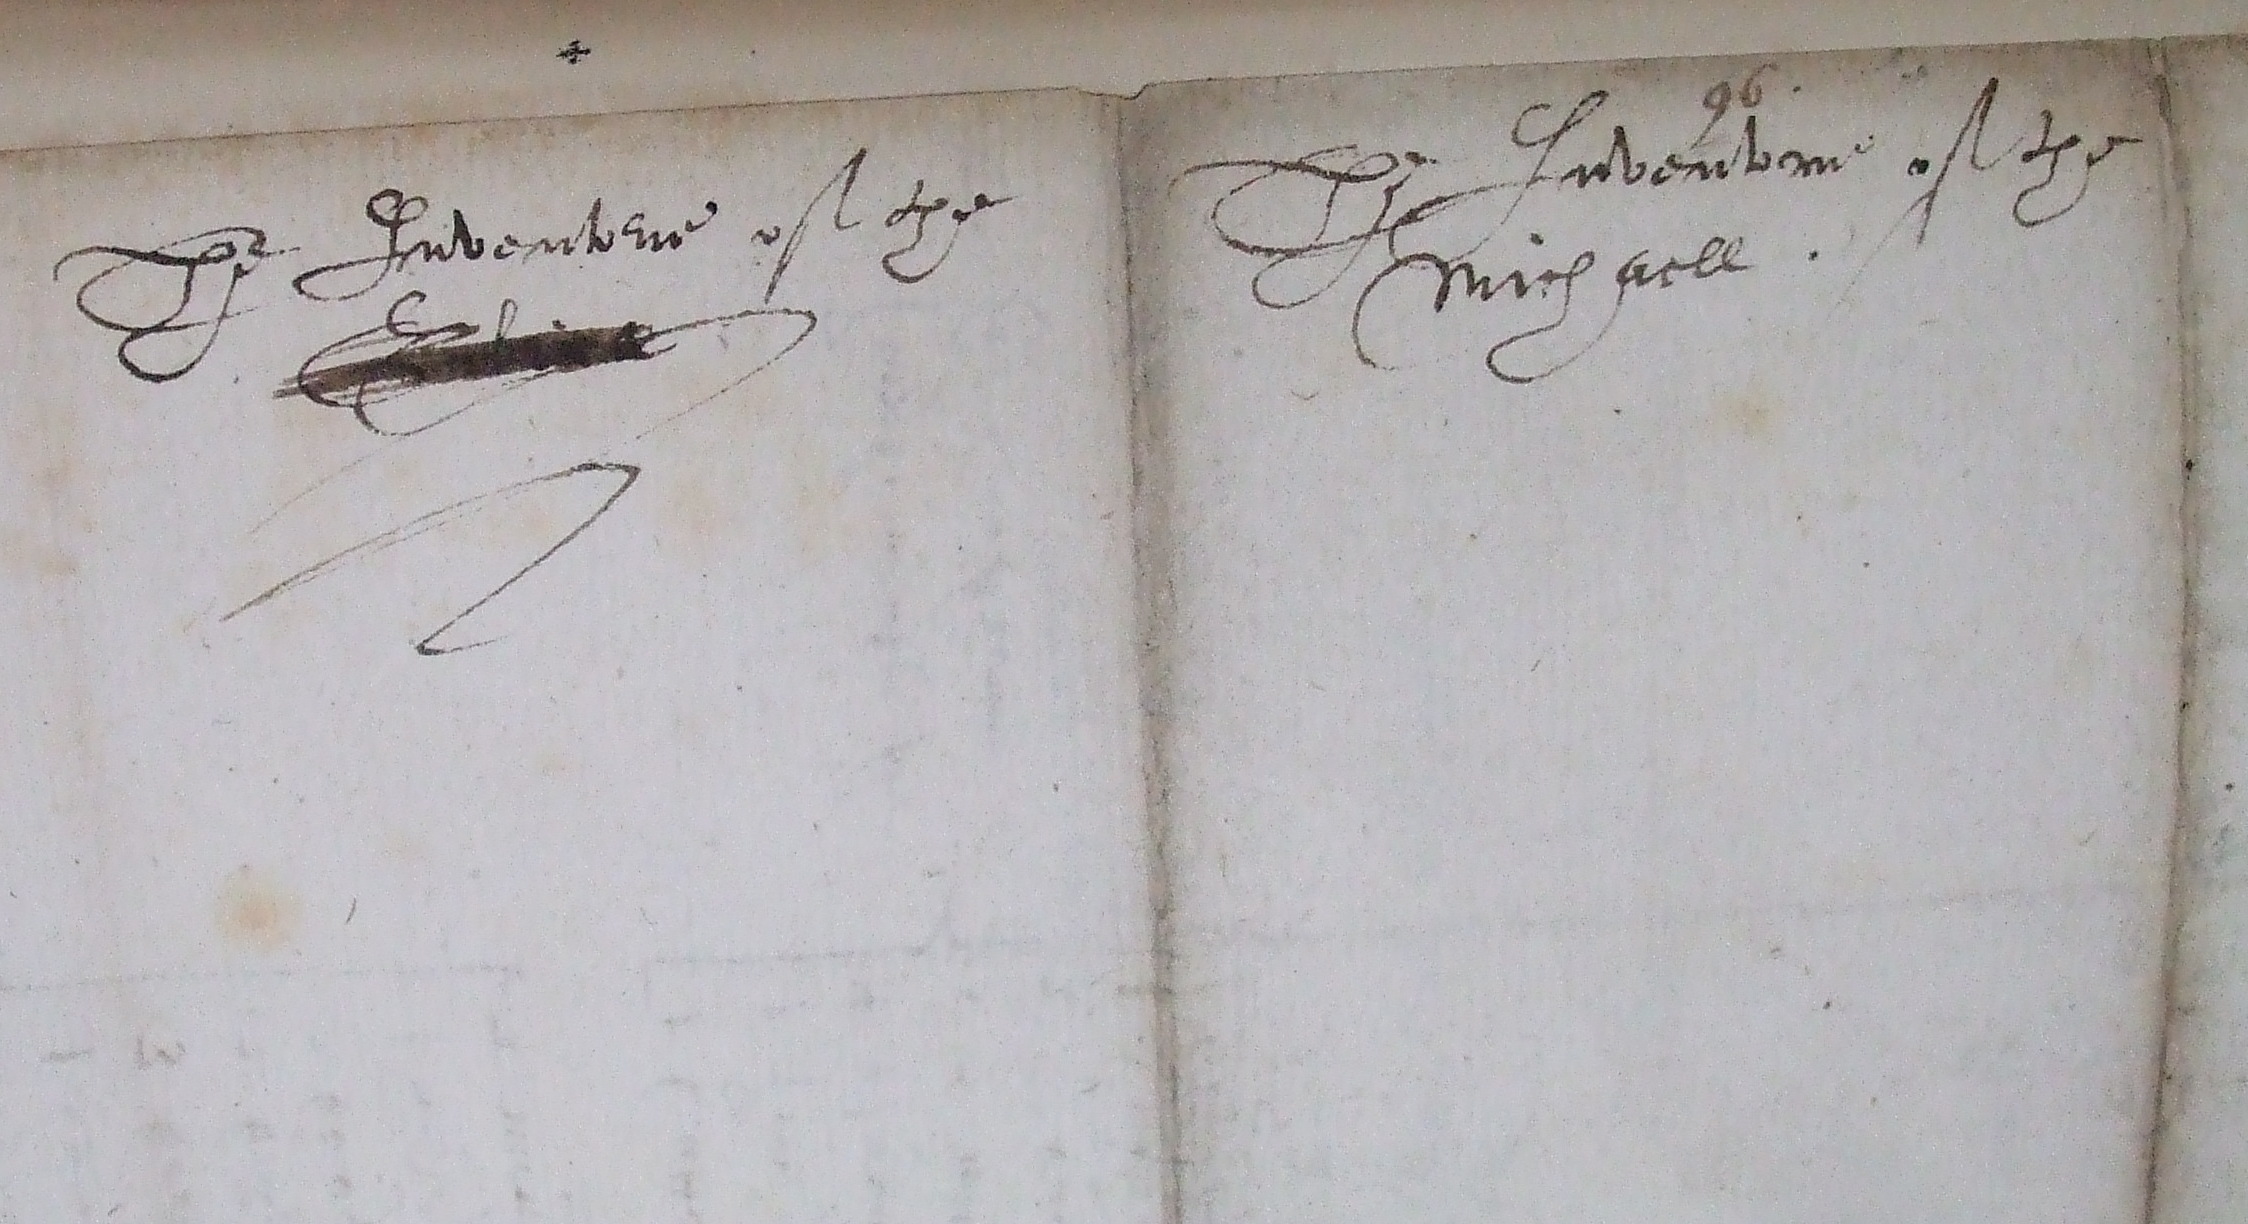 The Inventorie of the
96.
The Inventorie of the
Michaell .